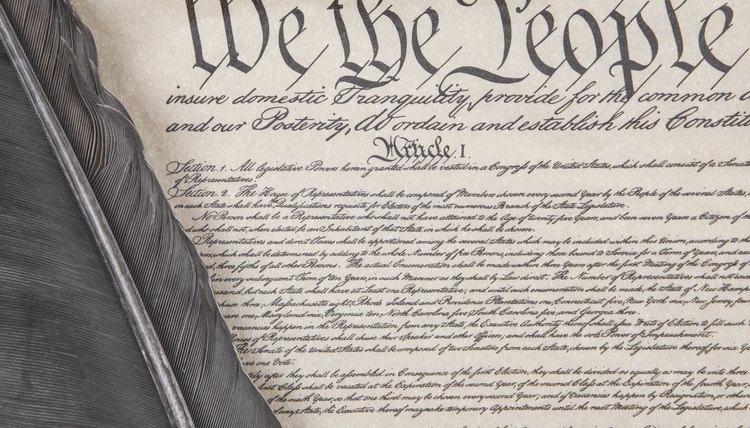 We the People
insure domestic Tranquility, provide for the common
and our Posterity, do ordain and establish this Constit
Article. I.
Section. 1. All legislative Powers herein granted shall be vested in a Congress of the United States, which shall consist of a Senate
of Representatives.
Section. 2. The House of Representatives shall be composed of Members chosen every second Year by the People of the several States,
in each State shall have the Qualifications requisite for Electors of the most numerous Branch of the State Legislature.
No Person shall be a Representative who shall not have attained to the Age of twenty five Years, and been seven Years a Citizen of
and who shall not, when elected, be an Inhabitant of that State in which he shall be chosen.
Representatives and direct Taxes shall be apportioned among the several States which may be included within this Union, according to
which shall be determined by adding to the whole Number of free Persons, including those bound to Service for a Term of Years, and
three fifths of all other Persons. The actual Enumeration shall be made within three Years after the first Meeting of the Congress of
in every subsequent Term of ten Years, in such Manner as they shall by Law direct. The Number of Representatives shall not
but each State shall have at Least one Representative; and until such enumeration shall be made, the State of New Hamp
three, Massachusetts eight, Rhode Island and Providence Plantations one, Connecticut five, New York six, New Jersey
one, Maryland six, Virginia ten, North Carolina five, South Carolina five, and Georgia three.
vacancies happen in the Representation from any State, the Executive Authority thereof shall issue Writs of Election to fill such
House of Representatives shall chuse their Speaker and other Officers; and shall have the sole Power of Impeachment.
The Senate of the United States shall be composed of two Senators from each State, chosen by the Legislature thereof, for six
have one Vote.
after they shall be assembled in Consequence of the first Election, they shall be divided as equally as may be into three
first Class shall be vacated at the Expiration of the second Year, of the second Class at the Expiration of the fourth Year
of the sixth Year, so that one third may be chosen every second Year; and if Vacancies happen by Resignation, or
of any State, the Executive thereof may make temporary Appointments until the next Meeting of the Legislature, which